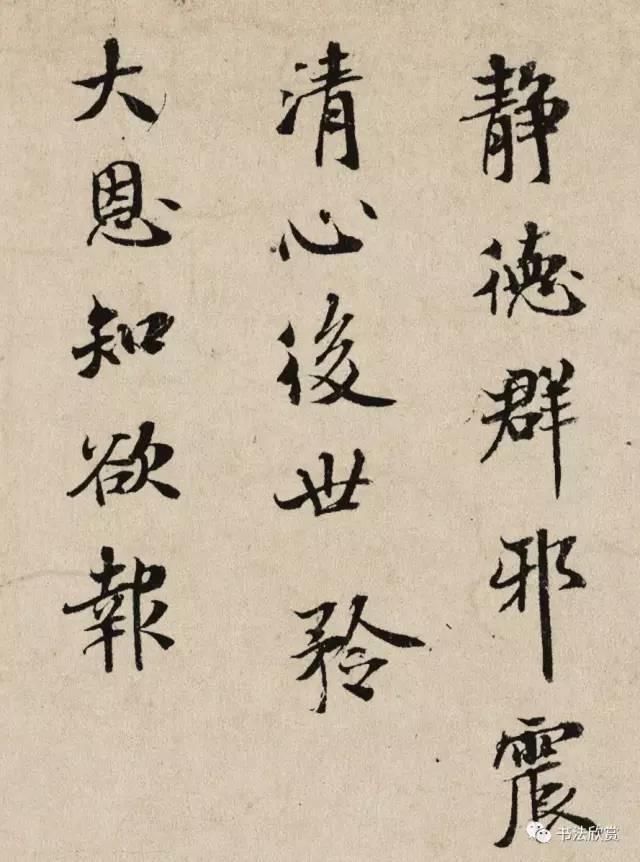 静德群邪震
清心後世矜
大恩知欲報
书法欣赏